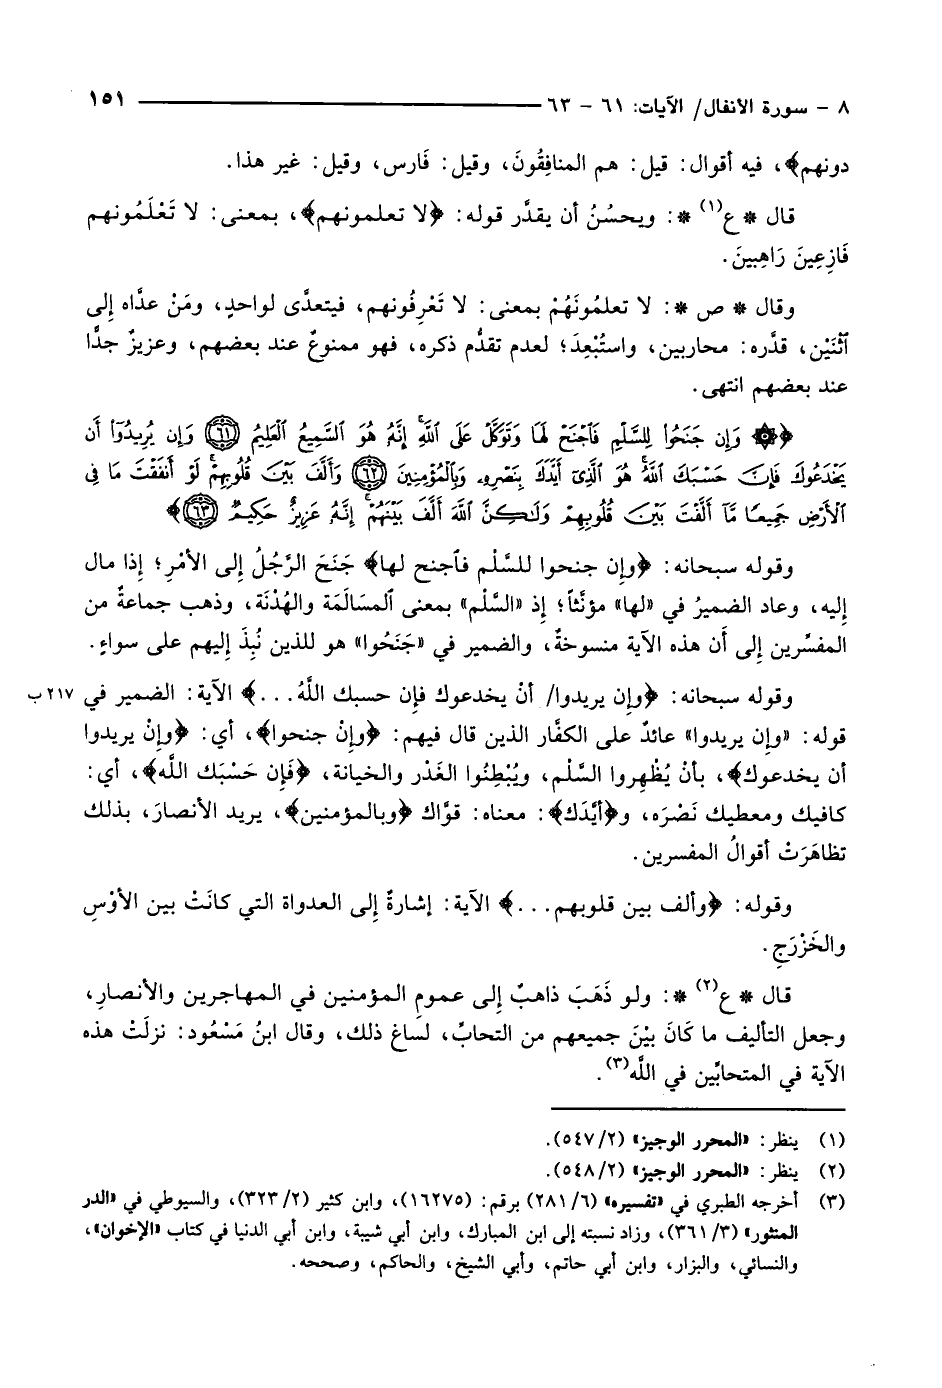 ٨ - سورة الأنفال/ الآيات: ٦١ - ٦٣ ١٥١
دونهم﴾، فيه أقوال: قيل: هم المنافِقُونَ، وقيل: فَارس، وقيل: غير هذا.
قال * ع(١) *: ويحسُنُ أن يقدَّر قوله: ﴿لا تعلمونهم﴾، بمعنى: لا تَعْلَمُونهم
فَازِعِينَ رَاهِبينَ.
وقال * ص *: لا تعلمُونَهُمْ بمعنى: لا تَعْرِفُونهم، فيتعدَّى لواحدٍ، ومَنْ عدَّاه إلى
ٱثْنَيْن، قدَّره: محاربين، واستُبْعِدَ؛ لعدم تقدُّم ذكره، فهو ممنوعٌ عند بعضهم، وعزيزٌ جدًّا
عند بعضهم انتهى.
﴿۞ وَإِن جَنَحُوا۟ لِلسَّلْمِ فَٱجْنَحْ لَهَا وَتَوَكَّلْ عَلَى ٱللَّهِ إِنَّهُۥ هُوَ ٱلسَّمِيعُ ٱلْعَلِيمُ ﴿٦١﴾ وَإِن يُرِيدُوٓا۟ أَن
يَخْدَعُوكَ فَإِنَّ حَسْبَكَ ٱللَّهُ هُوَ ٱلَّذِىٓ أَيَّدَكَ بِنَصْرِهِۦ وَبِٱلْمُؤْمِنِينَ ﴿٦٢﴾ وَأَلَّفَ بَيْنَ قُلُوبِهِمْ لَوْ أَنفَقْتَ مَا فِى
ٱلْأَرْضِ جَمِيعًا مَّآ أَلَّفْتَ بَيْنَ قُلُوبِهِمْ وَلَٰكِنَّ ٱللَّهَ أَلَّفَ بَيْنَهُمْ إِنَّهُۥ عَزِيزٌ حَكِيمٌ ﴿٦٣﴾﴾
وقوله سبحانه: ﴿وإن جنحوا للسَّلْم فٱجنح لها﴾ جَنَحَ الرَّجُلُ إلى الأمْرِ؛ إذا مال
إليه، وعاد الضميرُ في «لها» مؤنَّثاً؛ إذ «السَّلْم» بمعنى ٱلمسَالَمة والهُدْنَة، وذهب جماعةٌ من
المفسِّرين إلى أن هذه الآية منسوخةٌ، والضمير في «جَنَحُوا» هو للذين نُبِذَ إليهم على سواءٍ.
وقوله سبحانه: ﴿وإن يريدوا/ أنْ يخدعوك فإن حسبك اللَّهُ...﴾ الآية: الضمير في ٢١٧ ب
قوله: «وإن يريدوا» عائدٌ على الكفَّار الذين قال فيهم: ﴿وإنْ جنحوا﴾، أي: ﴿وإنْ يريدوا
أن يخدعوك﴾، بأنْ يُظْهِروا السَّلْم، ويُبْطِنُوا الغَدْر والخيانة، ﴿فَإن حَسْبَك الله﴾، أي:
كافيك ومعطيك نَصْرَه، و﴿أيَّدَك﴾: معناه: قوَّاك ﴿وبالمؤمنين﴾، يريد الأنصارَ، بذلك
تظاهَرَتْ أقوالُ المفسرين.
وقوله: ﴿وألف بين قلوبهم...﴾ الآية: إشارةٌ إلى العدواة التي كانَتْ بين الأوْسِ
والخَزْرَجِ.
قال * ع(٢) *: ولو ذَهَبَ ذاهبٌ إلى عمومِ المؤمنين في المهاجرين والأنصارِ،
وجعل التأليف ما كَانَ بيْنَ جميعهم من التحابِّ، لساغ ذلك، وقال ابنُ مَسْعُود: نزلَتْ هذه
الآية في المتحابِّين في اللَّه(٣).
(١) ينظر: «المحرر الوجيز» (٢/ ٥٤٧).
(٢) ينظر: «المحرر الوجيز» (٢/ ٥٤٨).
(٣) أخرجه الطبري في «تفسيره» (٦/ ٢٨١) برقم: (١٦٢٧٥)، وابن كثير (٢/ ٣٢٣)، والسيوطي في «الدر
المنثور» (٣/ ٣٦١)، وزاد نسبته إلى ابن المبارك، وابن أبي شيبة، وابن أبي الدنيا في كتاب «الإخوان»،
والنسائي، والبزار، وابن أبي حاتم، وأبي الشيخ، والحاكم، وصححه.